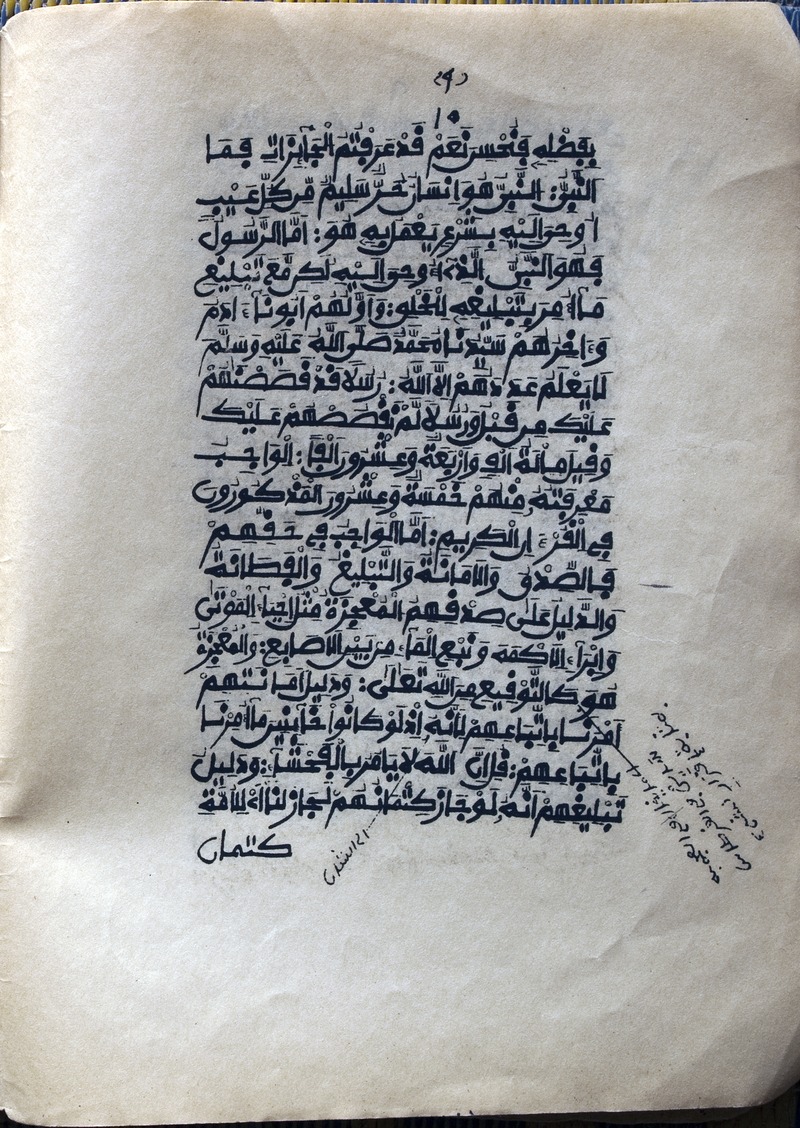 (٩)
١٥
بفضله فنحسن نعم قد عرفتم الجآئزات فما
النبيّ: النبيّ هو انسان حرّ سليم من كلّ عيب
اوحي اليه بشرع يعمل به هو: امّا الرّسول
فهو النبيّ الّذي اوحي اليه لكن مع تبليغ
ما امر بتبليغه للخلق: واوّلهم ابونا ءادم
وءاخرهم سيّدنا محمّد صلّى اللّه عليه وسلّم
لا يعلم عددهم الّا اللّه: رسلا قد قصصنهم
عليك من قبل ورسلا لم نقصصهم عليك
وقيل مائة الف واربعة وعشرون الفا: الواجب
معرفته منهم خمسة وعشرون المذكورون
في القرءان الكريم: امّا الواجب في حقّهم
فالصّدق والامانة والتّبليغ والفطانة
والدّليل على صدقهم المعجزة مثل احياء الموتى
وابراء الاكمه ونبع الماء من بين الاصابع: والمعجزة
هو كالتّوقيع من اللّه تعلى: ودليل امانتهم
امرنا باتّباعهم لانّه اذ لو كانوا خآئنين ما امرنا
باتّباعهم: قل انّ اللّه لا يامر بالفحشآء: ودليل
تبليغهم انّه لو جاز كتمانهم لجاز لنا
كتمان